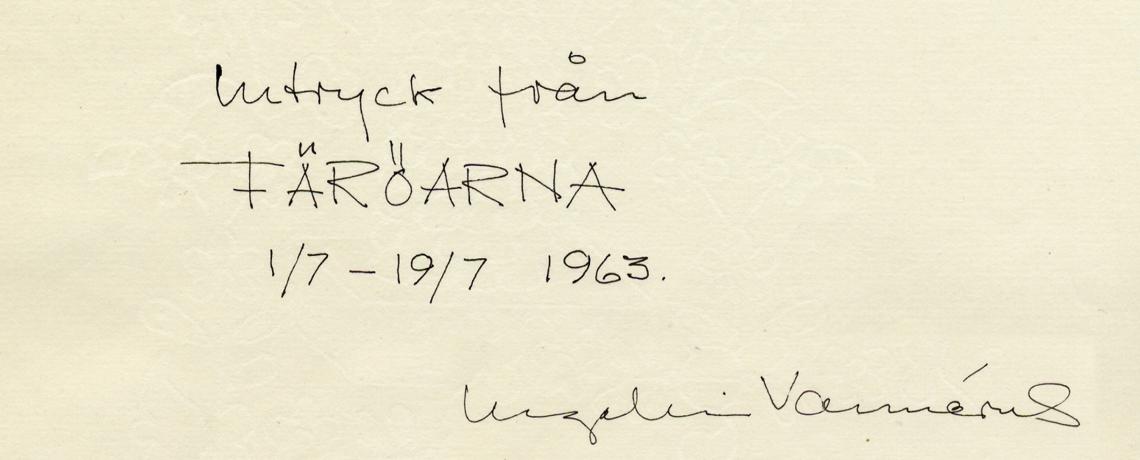 Intryck från
FÄRÖARNA
1/7 – 19/7 1963.
Ingelin Vannérus